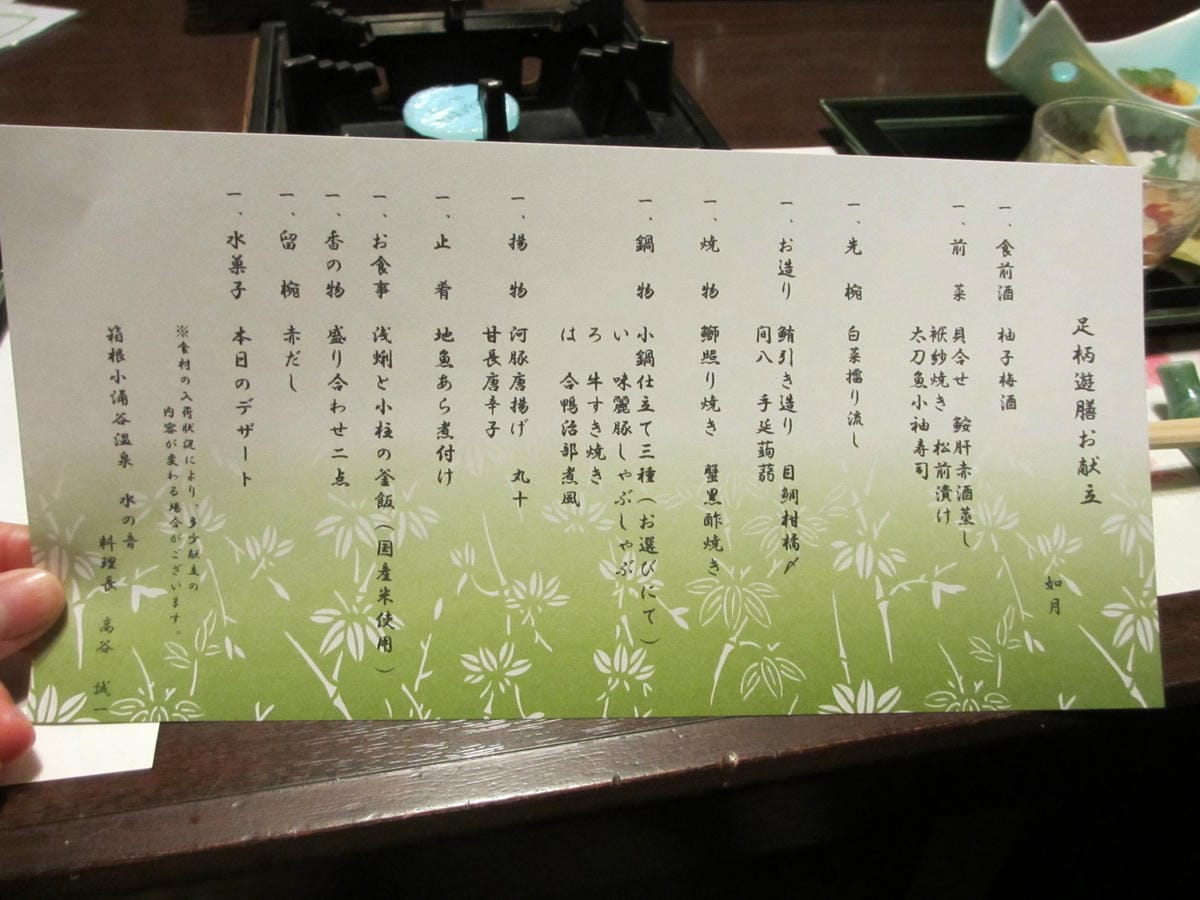 足柄遊膳お献立
如月
一、食前酒 柚子梅酒
一、前菜 貝合せ 鮟肝赤酒蒸し
袱紗焼き 松前漬け
太刀魚小袖寿司
一、先椀 白菜擂り流し
一、お造り 鮪引き造り 目鯛柑橘〆
間八 手延蒟蒻
一、焼物 鰤照り焼き 蟹黒酢焼き
一、鍋物 小鍋仕立て三種(お選びにて)
い 味麗豚しゃぶしゃぶ
ろ 牛すき焼き
は 合鴨治部煮風
一、揚物 河豚唐揚げ 丸十
甘長唐辛子
一、止肴 地魚あら煮付け
一、お食事 浅蜊と小柱の釜飯(国産米使用)
一、香の物 盛り合わせ二点
一、留椀 赤だし
一、水菓子 本日のデザート
※食材の入荷状況により、多少献立の
内容が変わる場合がございます。
箱根小涌谷温泉 水の音
料理長 高谷 誠一